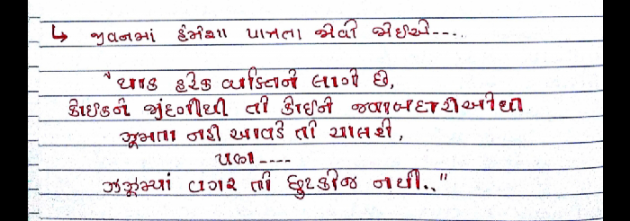 ↳ જીવનમાં હંમેશા પાત્રતા એવી જોઈએ....
"થાક હરેક વ્યક્તિને લાગે છે,
કોઈકને જીંદગીથી તો કોઈને જવાબદારીઓથી
ઝૂમતા નહી આવડે તો ચાલશે,
પણ ----
ઝઝૂમ્યાં વગર તો છુટકોજ નથી.."